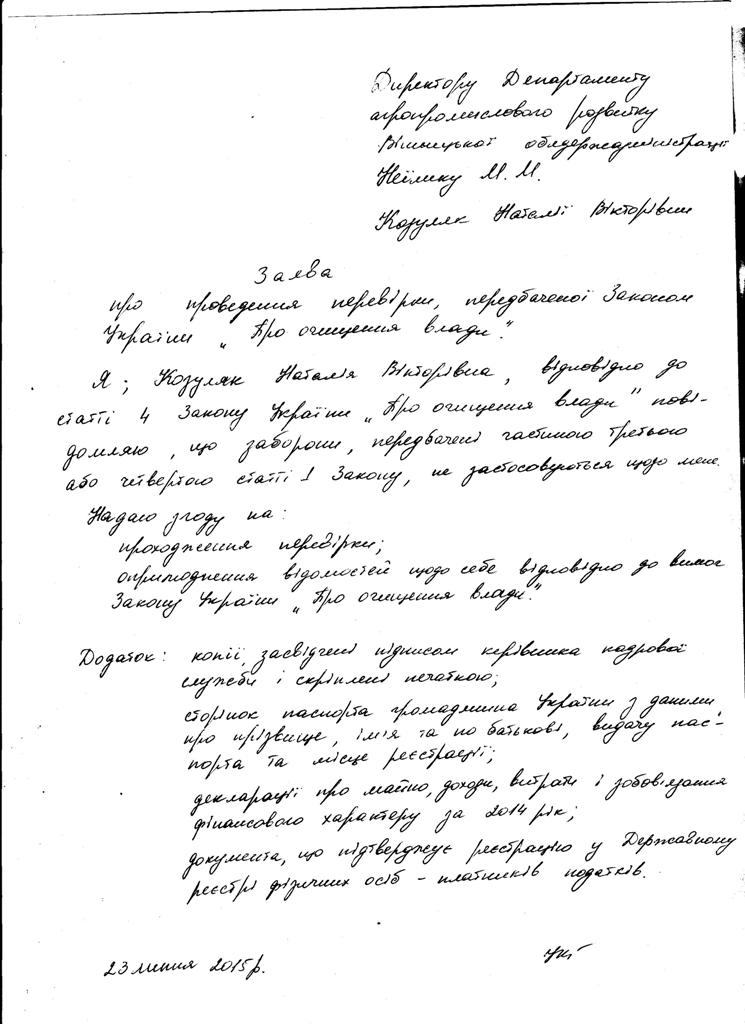 Директору Департаменту
агропромислового розвитку
Вінницької облдержадміністрації
Неїлику М. М.
Козуляк Наталії Вікторівни
Заява
про проведення перевірки, передбаченої Законом
України „Про очищення влади".
Я, Козуляк Наталія Вікторівна, відповідно до
статті 4 Закону України „Про очищення влади" пові-
домляю, що заборони, передбачені частиною третьою
або четвертою статті 1 Закону, не застосовуються щодо мене.
Надаю згоду на:
проходження перевірки;
оприлюднення відомостей щодо себе відповідно до вимог
Закону України „Про очищення влади".
Додаток: копії, засвідчені підписом керівника кадрової
служби і скріплені печаткою;
сторінок паспорта громадянина України з даними
про прізвище, ім'я та по батькові, видачу пас-
порта та місце реєстрації;
декларації про майно, доходи, витрати і зобов'язання
фінансового характеру за 2014 рік;
документа, що підтверджує реєстрацію у Державному
реєстрі фізичних осіб - платників податків.
23 липня 2015р.